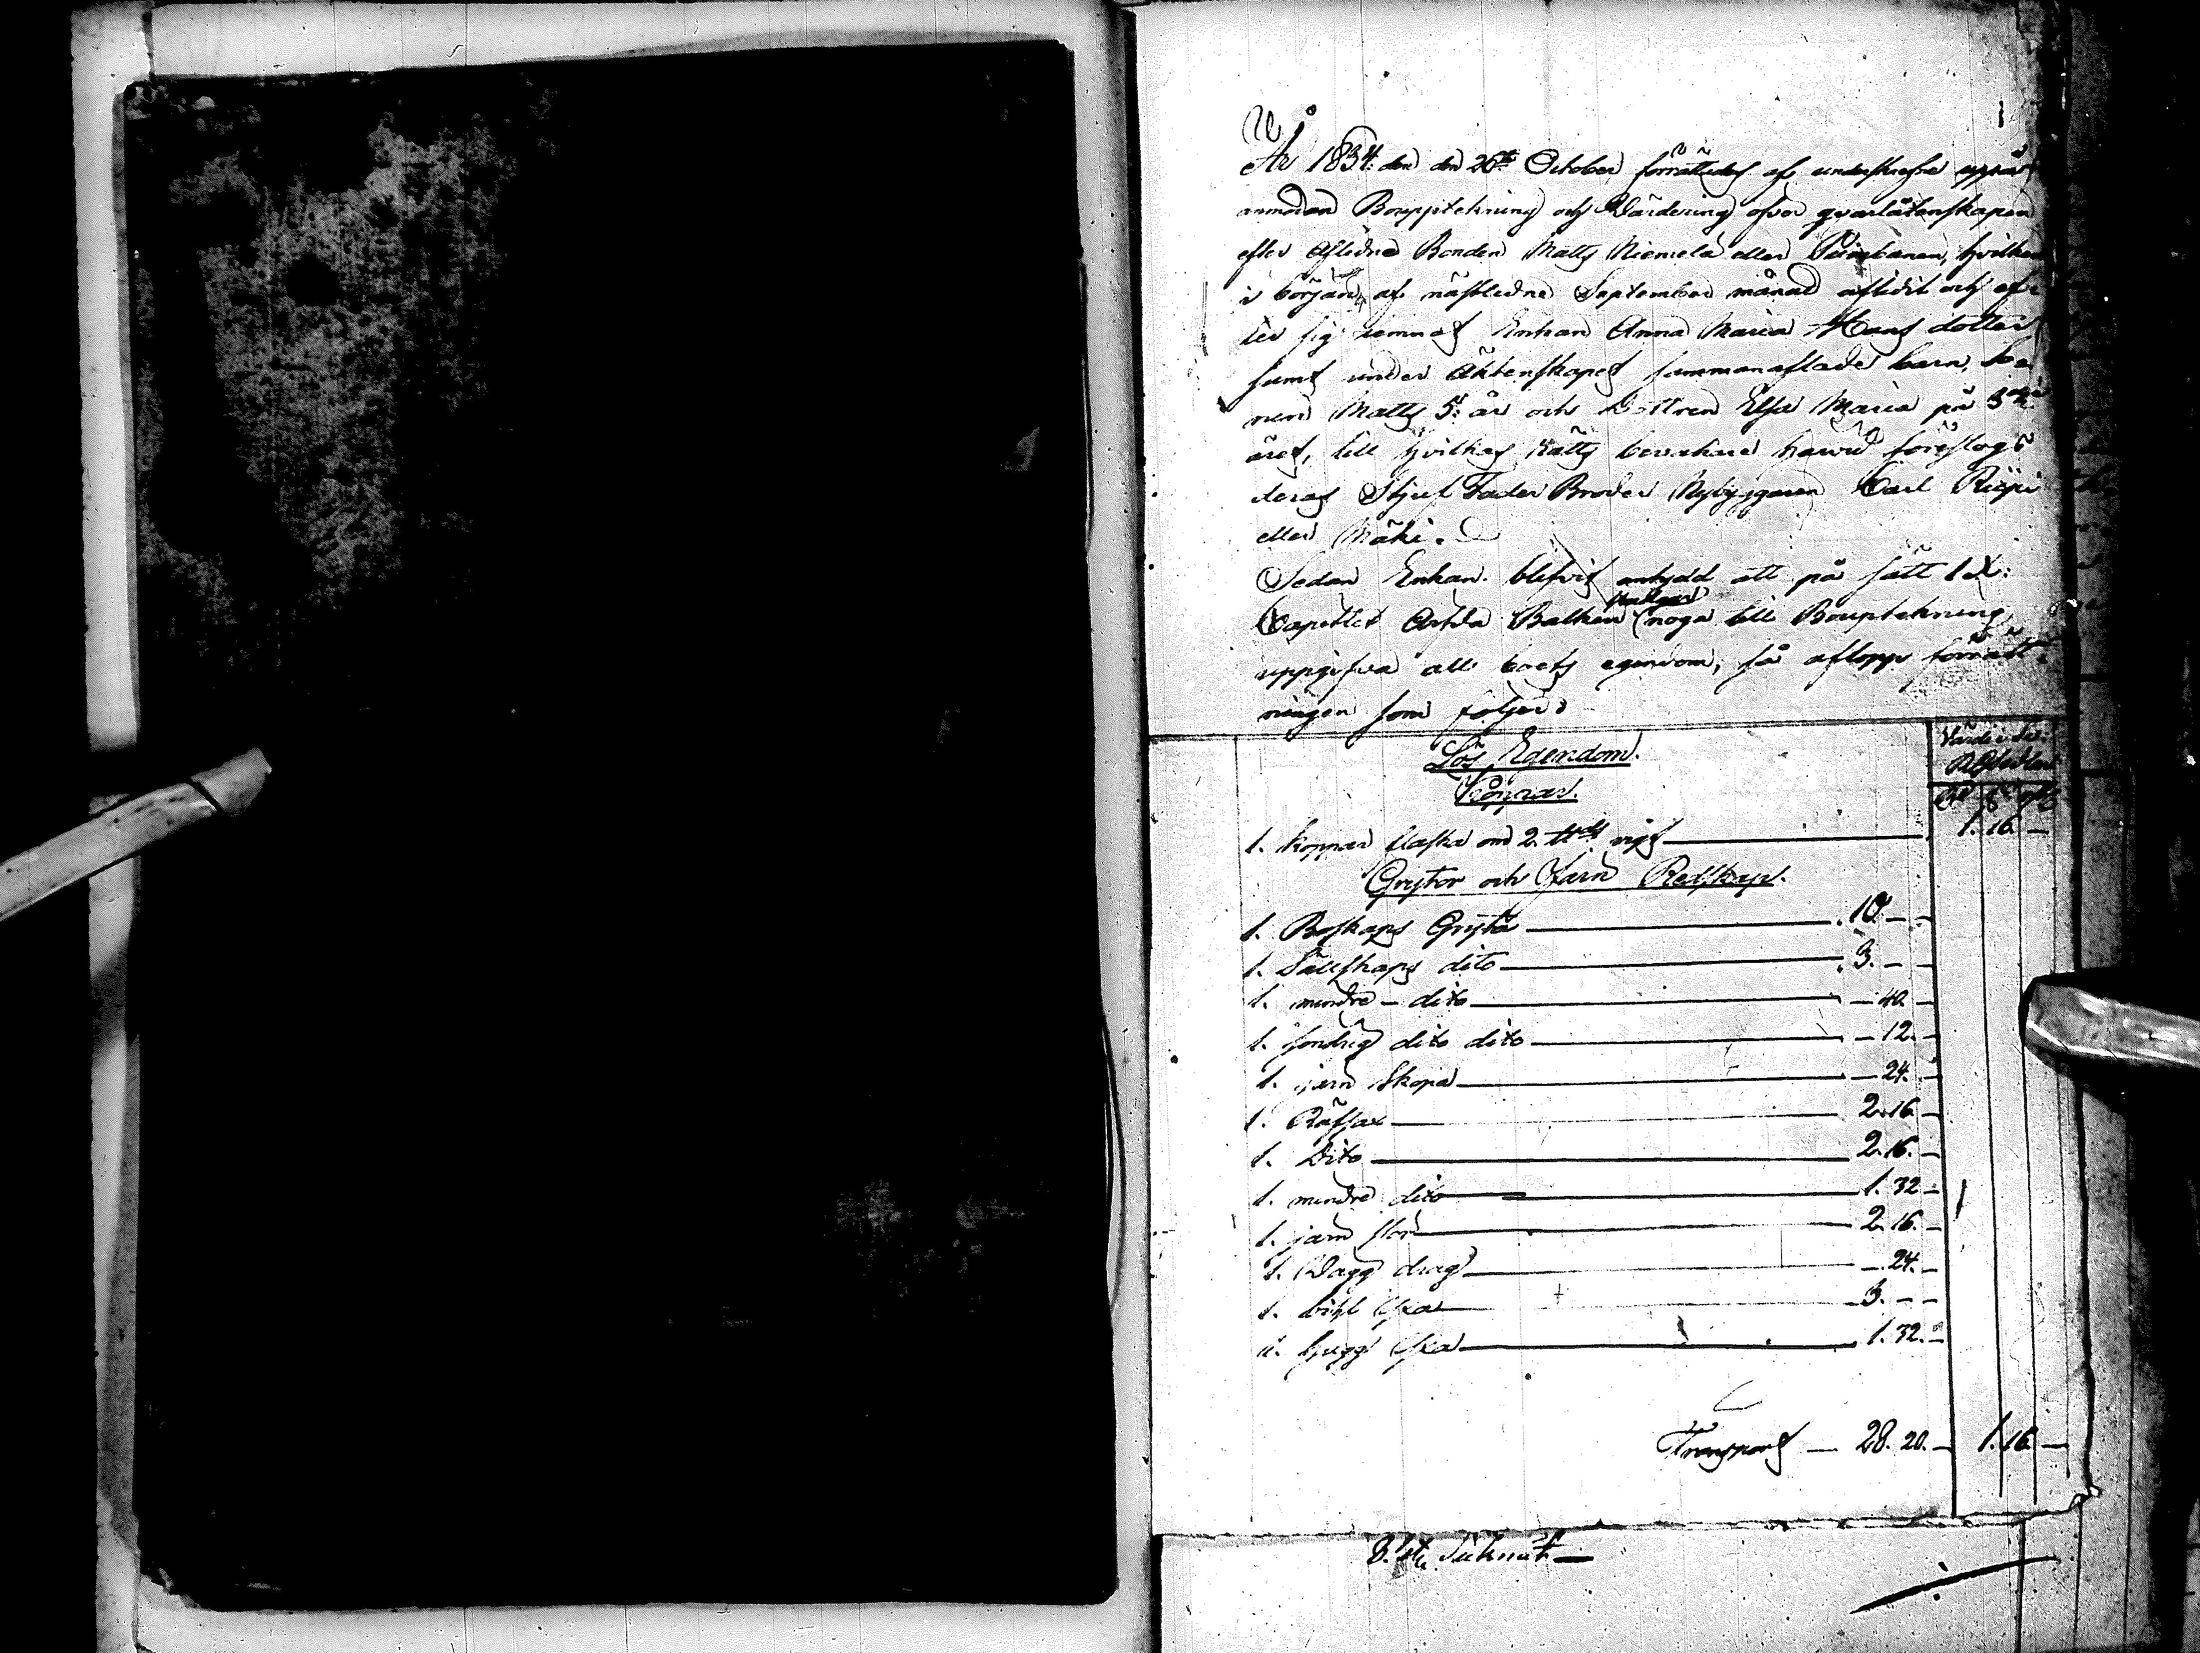 1
År 1834. den den 26te October förrättades af underskrefne uppå
anmodan Boupptekning och Värdering öfver qvarlåtenskapen
efter Aflidne Bonden Matts Niemelä eller hvilken
i början af nästledne September månad aflidit och ef-
ter sig lemnat Enkan Anna Maria Hans dotter
samt under Äktenskapet sammanaflade barn, So-
nen Matts 5. år och Dottren Elsa Maria på 3dje
året, till hvilkas rätts bevakare härvid föreslogs
deras Stjuf Fader Broder Nybyggaren Carl
eller Mäki.
Sedan Enkan blifvit antydd att på sätt 1 X:
Capitlet Ärfda Balken noga till Bouptekning
uppgifva all boets egendom, så aflopp förrätt-
ningen som följer:
Lös Egendom.
Koppar.
Värde i
1. Koppar flaska om 2. vigt 1. 16. —
Grytor och Järn Redskap.
1. Boskaps Gryta 10. — —
1. Sällskaps dito 3. — —
1. mindre — dito — 40. —
1. dito dito — 12. —
1. järn Skopa — 24. —
1. Räfsax 2. 16. —
1. Dito 2. 16. —
1. mindre dito 1. 32. —
1. järn stör 2. 16. —
1. drag — 24. —
1. bihl Yxa 3. — —
1. hugg Yxa 1. 32. —
Transport — 28. 20. — 1. 16. —